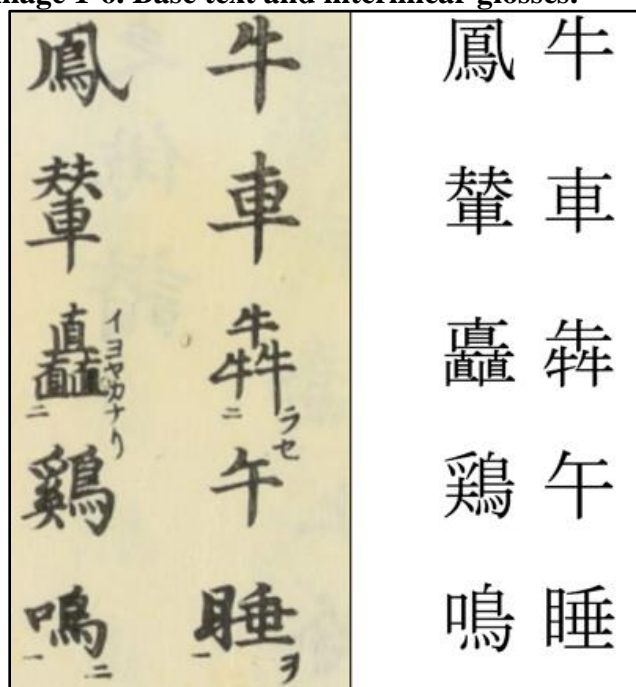 mage 1-6. Base text and interlinear glosses.
牛車犇二ラセ午睡一ヲ
鳳輦矗二イヨヤカナリ鷄鳴一ニ
牛車犇午睡
鳳輦矗鶏鳴